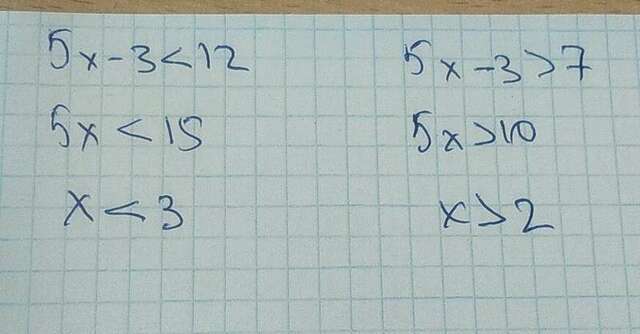 5x-3<12
5x<15
x<3
5x-3>7
5x>10
x>2